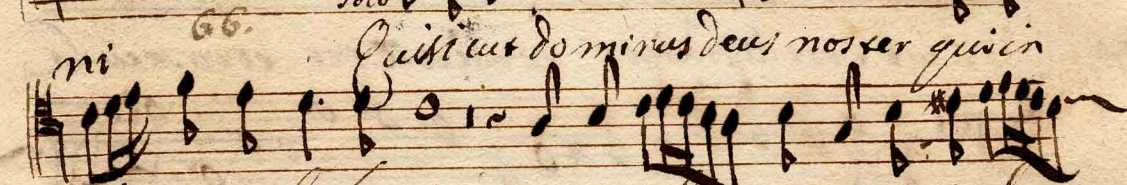 66.
ni Quis sicut dominus deus noster qui in